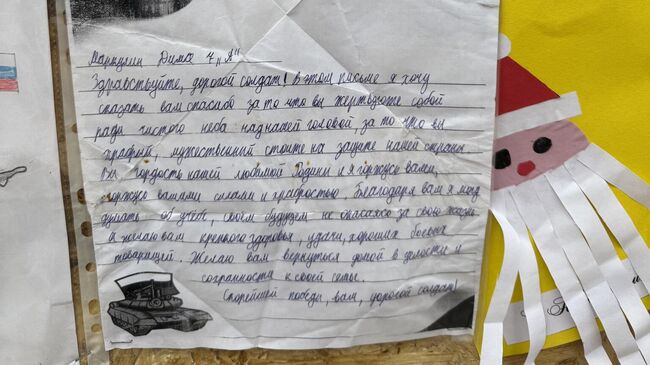 Маркулин Дима 4 „А"
Здравствуйте, дорогой солдат! В этом письме я хочу
сказать вам спасибо за то что вы жертвуете собой
ради чистого неба над нашей головой, за то что вы
храбрый, мужественный стоите на защите нашей страны
Вы гордость нашей любимой Родины и я горжусь вами,
горжусь вашими силами и храбростью. Благодаря вам я могу
думать об учёбе, своём будущем не опасаясь за свою жизнь
Я желаю вам крепкого здоровья, удачи, хороших боевых
товарищей. Желаю вам вернуться домой в целости и
сохранности к своей семье.
Скорейшей победы, вам, дорогой солдат!